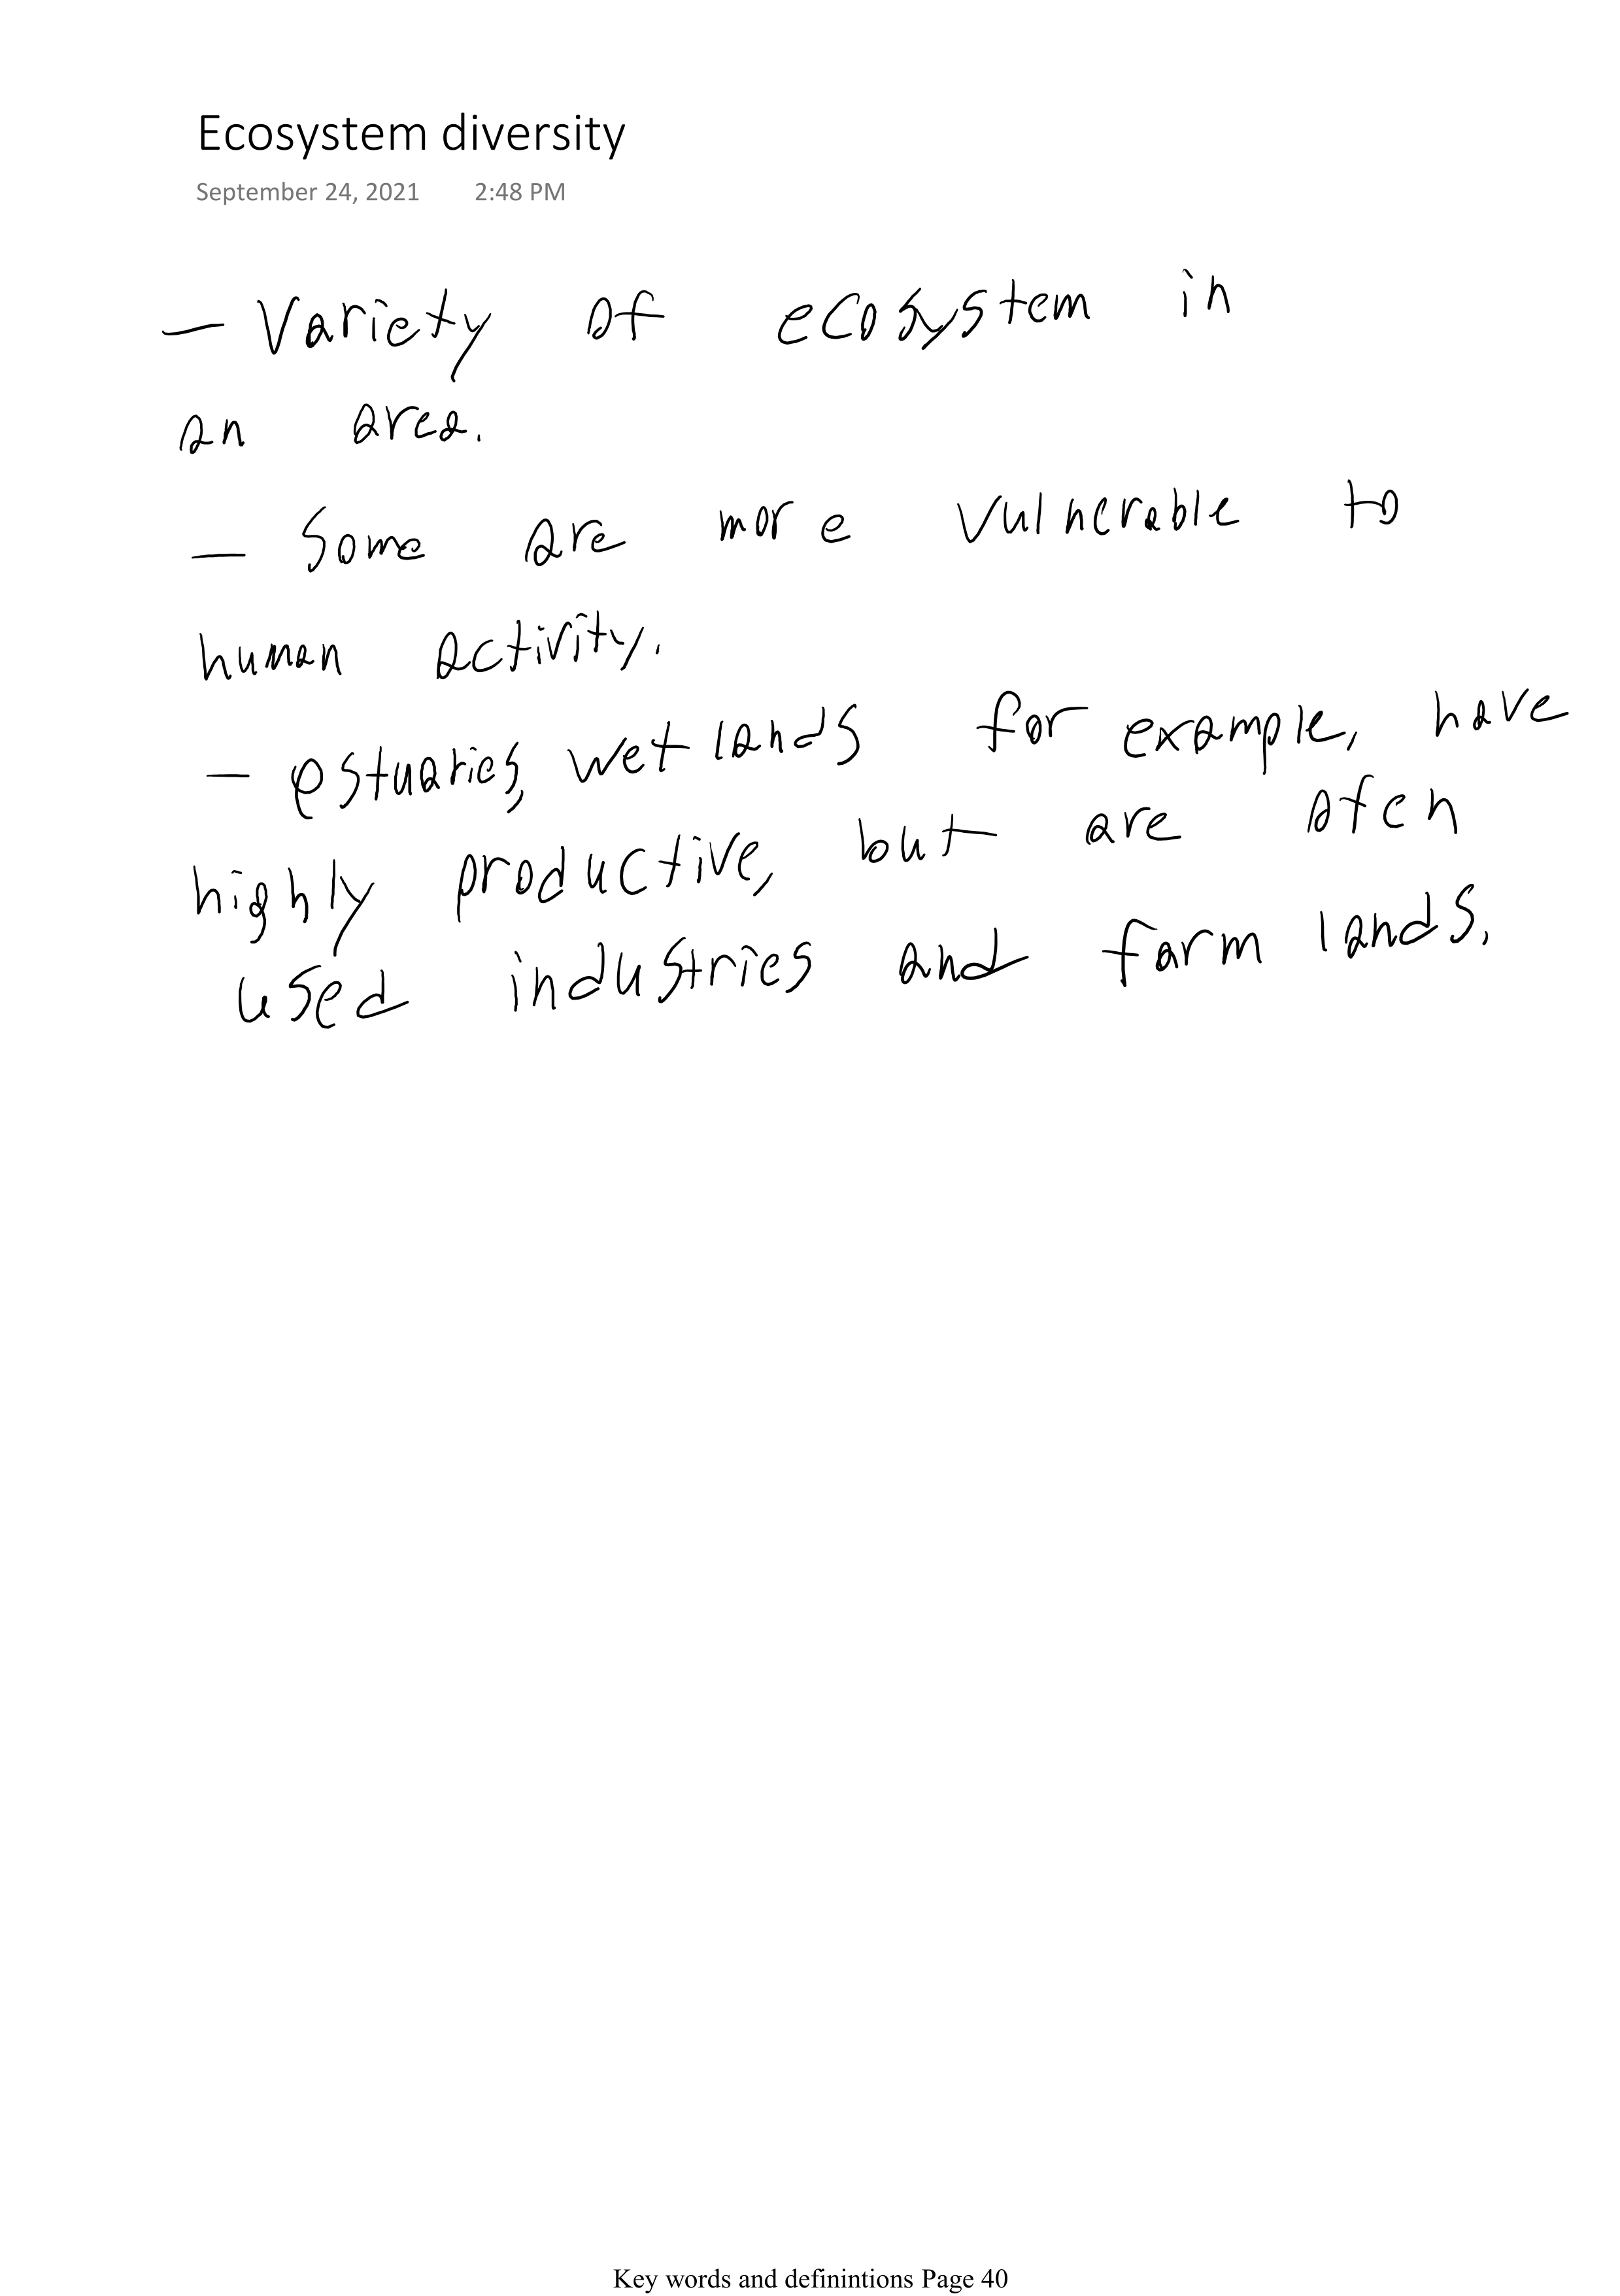 Ecosystem diversity
September 24, 2021 2:48 PM
— Variety of ecosystem in
an area.
— Some are more vulnerable to
human activity.
— estuaries, wetlands for example, have
highly productive, but are often
used industries and farm lands.
Key words and definintions Page 40